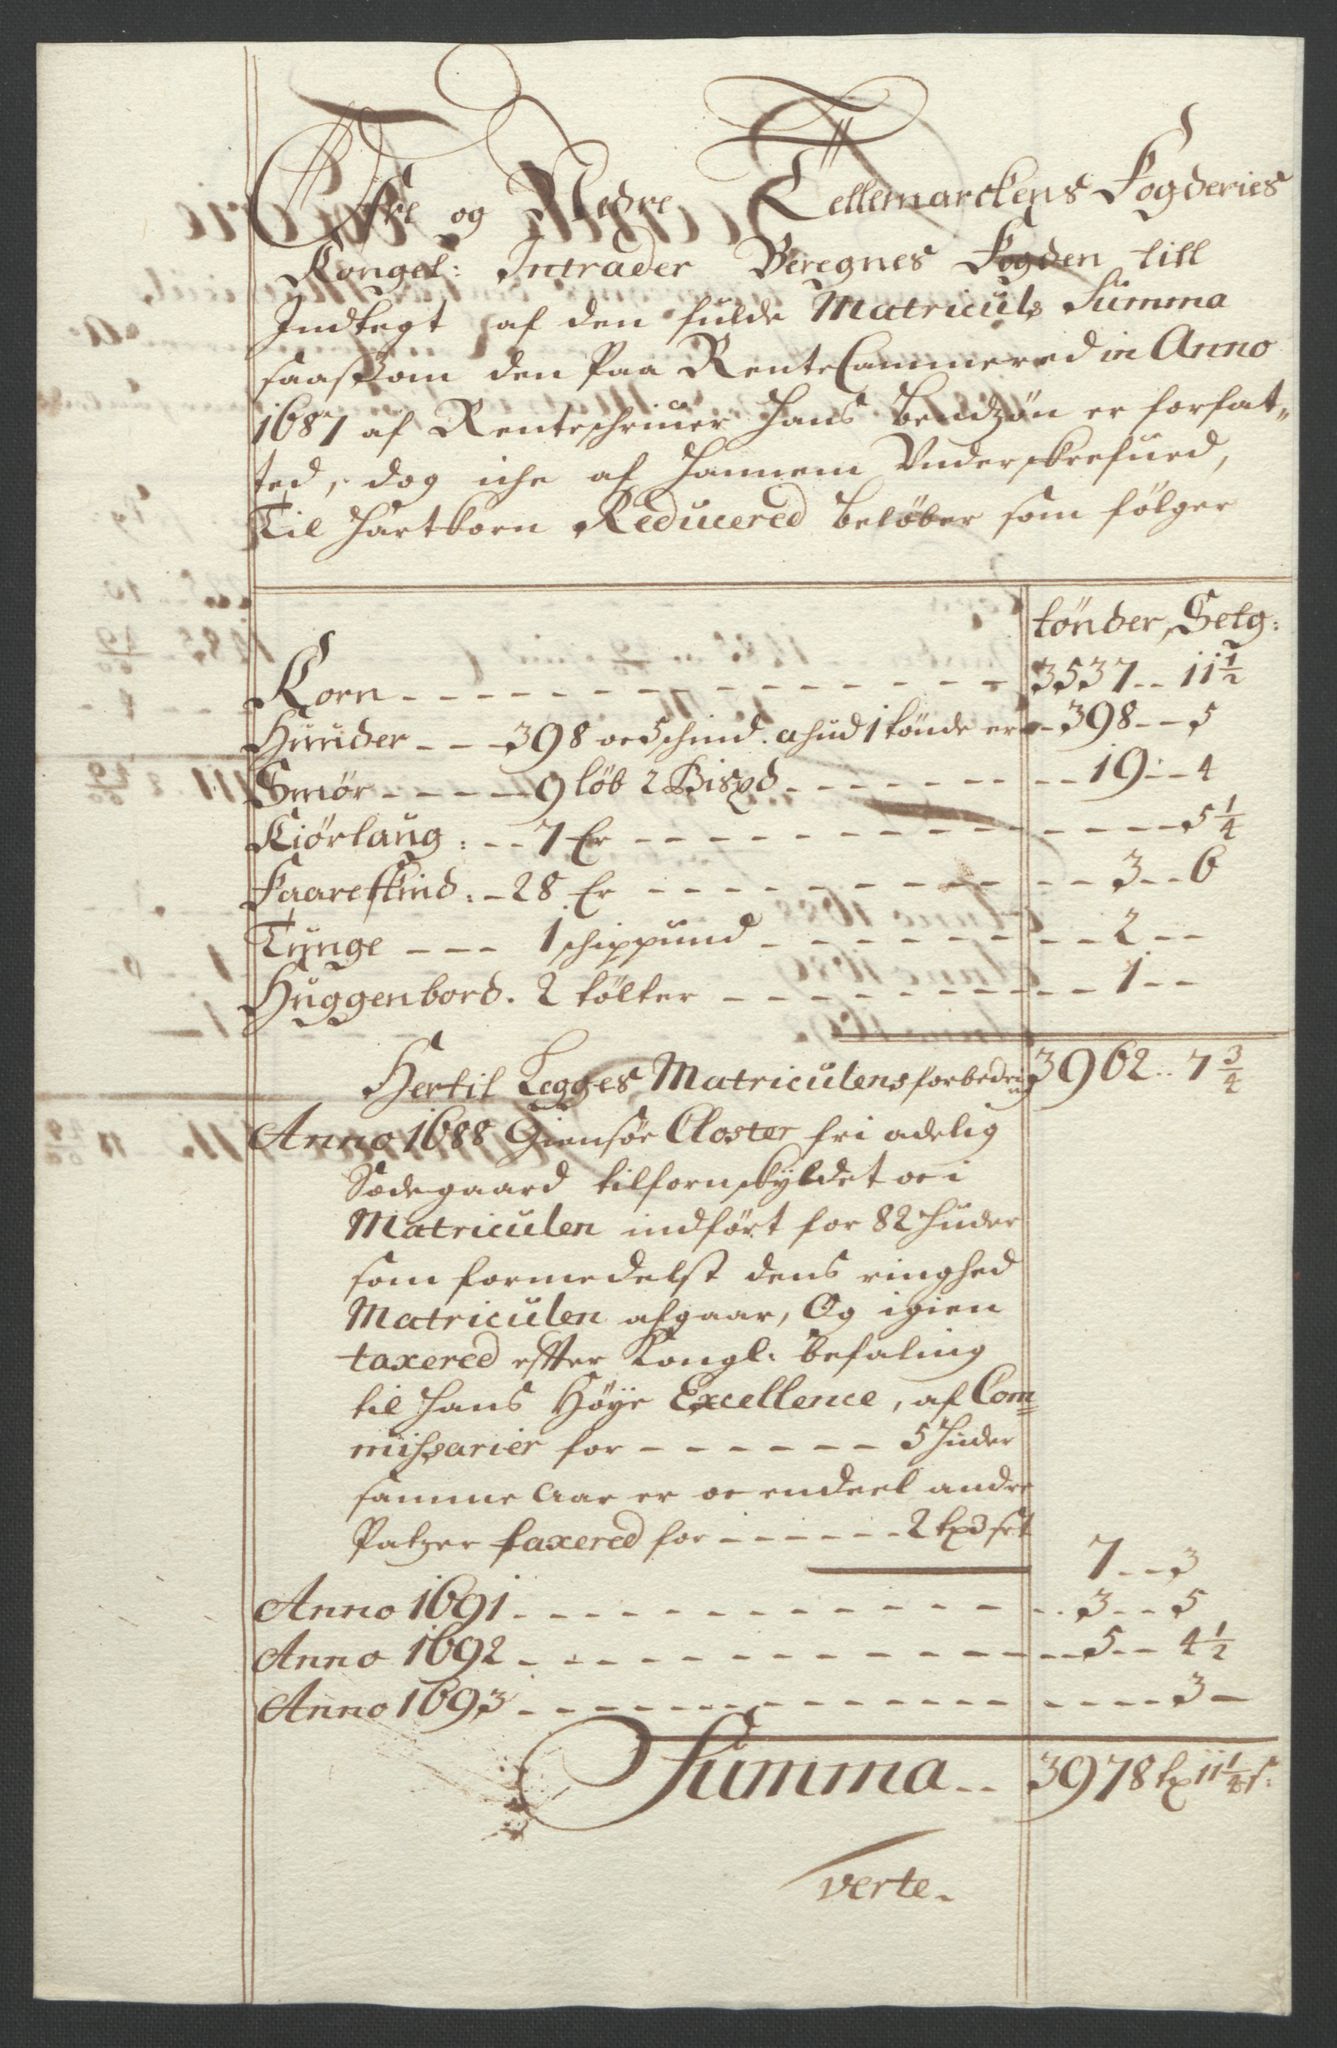 Øfre og Nedre Tellemarckens Fogderies
Kongel: Intrader Beregnes Fogden till
Indtegt af den fulde Matriculs Summa
saasom den Paa RenteCammered in Anno
1687 af Renteschriuer Hans Bendzøn er forfat„
ted, dog iche af hannem Vnderskrefued,
Til Hartkorn Reducered beløber som følger
tønder, Setg:
Korn - - - 3537 - - 11 1/2
Huuder - - - 398 oc 5 schind. a hud 1 tønde er - 398 - - 5
Smør - - - - - 9 løb 2 Bispd - - - 19 - - 4
Kiørlaug: - - 7 Er - - - 5 1/4
Faareskind: - 28 Er - - - 3 - - 6
Tynge - - - 1 schippund - - - 2 - -
Huggenbord. 2 tølter - - - 1 - -
Hertil Legges Matriculens forbedring 3962 .. 7 3/4
Anno 1688 Giensøe Closter fri adelig
Sædegaard tilforn skyldet oc i
Matriculen indført for 82 Huder
som formedelst dens ringhed
Matriculen afgaar, Og igien
taxered effter Kongl: befaling
til Hans Høye Excellence, af Com=
missarier for - - - - - - 5 Huder
samme Aar er oc endeel andre
Platzer taxered for - - - - - - 2 tpd 3 set
7 - - 3
Anno 1691 - - - 3 - - 5
Anno 1692 - - - 5 - - 4 1/2
Anno 1693 - - - 3 -
Summa - - 3978 tp 11 1/4 s:
verte.